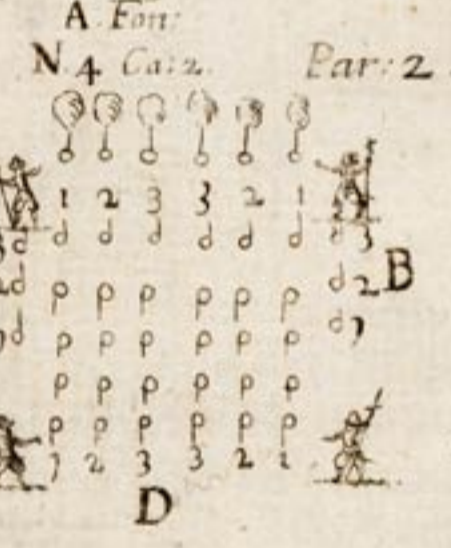 A. Fon:
N. 4 Ca: 2. Par: 2.
1 2 3 3 2 1
d d d d d d d 3
d d 2 B
p p p p p p
d d 1
p p p p p p
p p p p p p
p p p p p p
1 2 3 3 2 1
D